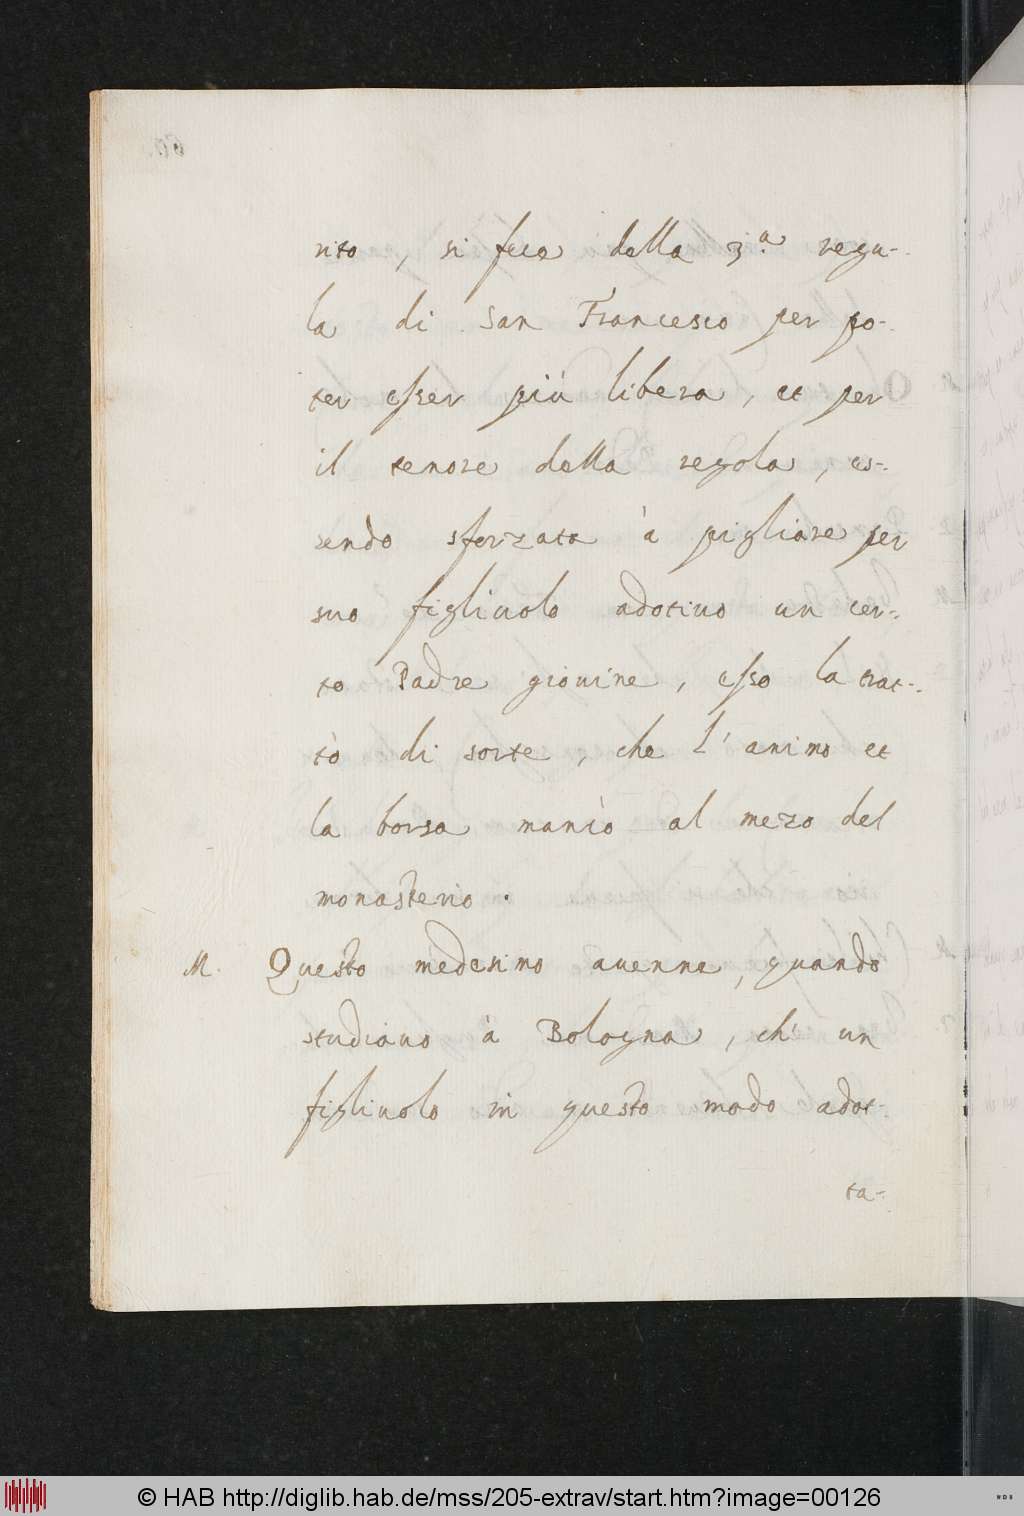 rito, si fece della 3.ª regu-
la di San Francesco per po-
ter esser più libera, et per
il tenore della regola, es-
sendo sforzata à pigliare per
suo figliuolo adotiuo un cer-
to Padre giouine, esso la trat-
tò di sorte, che l'animo et
la borsa mancò al mezo del
monasterio.
M. Questo medesimo auenne, quando
studiauo à Bologna, ch' un
figliuolo in questo modo adot-
ta-
© HAB http://diglib.hab.de/mss/205-extrav/start.htm?image=00126